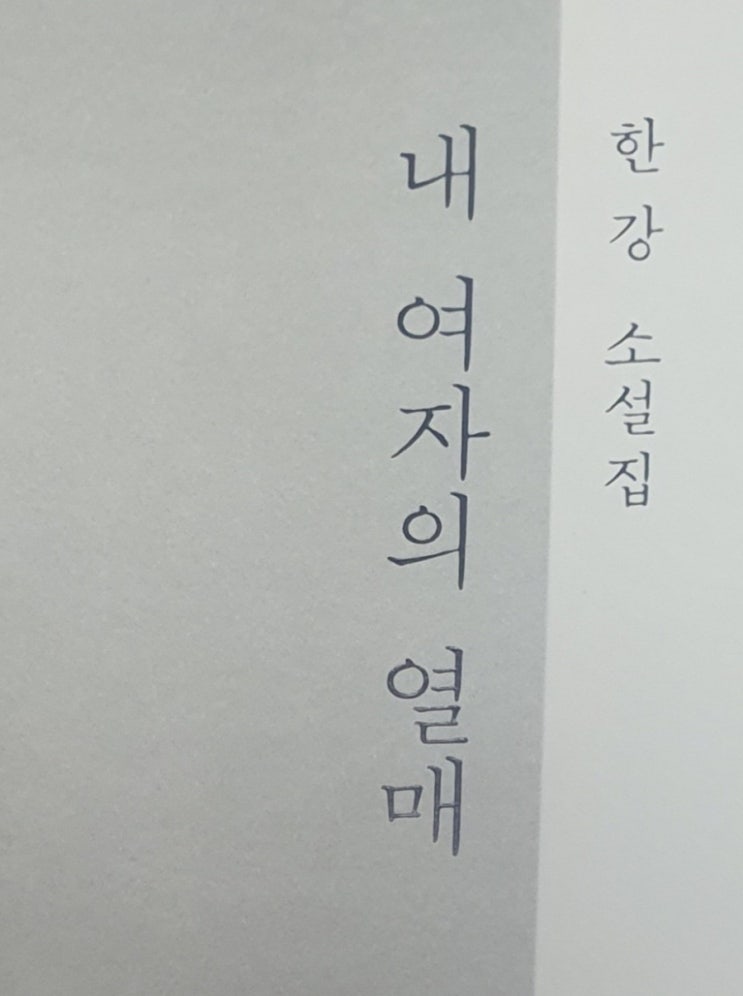 한강 소설집
내 여자의 열매